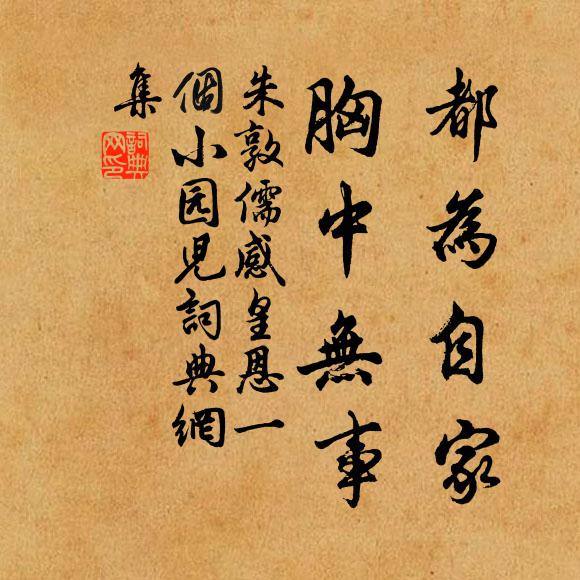 都為自家
胸中無事
朱敦儒感皇恩一
個小园兒詞典網
集
詞典
网印